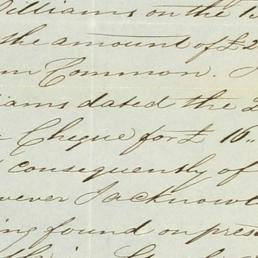 Williams on the 15
the amount of £2
om Common.
iams dated the 2
Cheque for £ 16"
consequently of
wever Jacknowl
ing found on pres